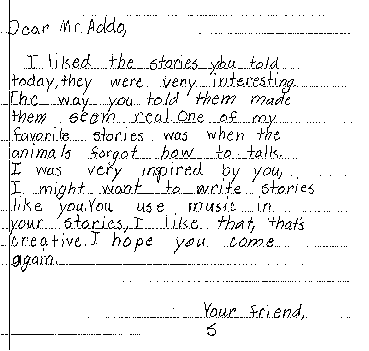 Dear Mr. Addo,
I liked the stories you told
today, they were very interesting
The way you told them made
them seam real. One of my
favorite stories was when the
animals forgot how to talk.
I was very inpired by you,
I might want to write stories
like you. You use music in
your stories, I like that, that's
creative. I hope you come
again.
Your friend,
S